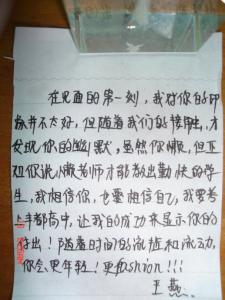 在见面的第一刻，我对你的印
象并不太好，但随着我们的接触，才
发现你的幽默，虽然你懒，但正
如你说，懒老师才能教出勤快的学
生，我相信你，也要相信自己，我要考
上丰都高中，让我的成功来显示你的
付出！随着时间的流逝和流动，
你会更年轻！更fashion!!!
王燕